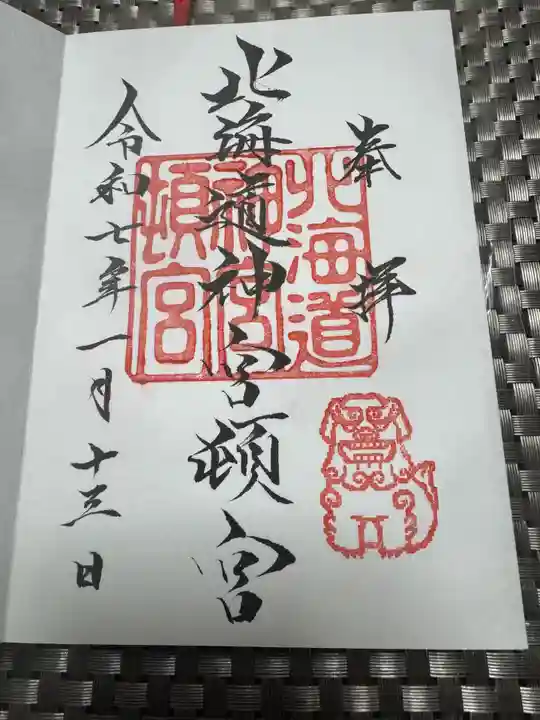 奉拝
北海道神宮頓宮
北海道
神宮
頓宮
令和七年一月十三日